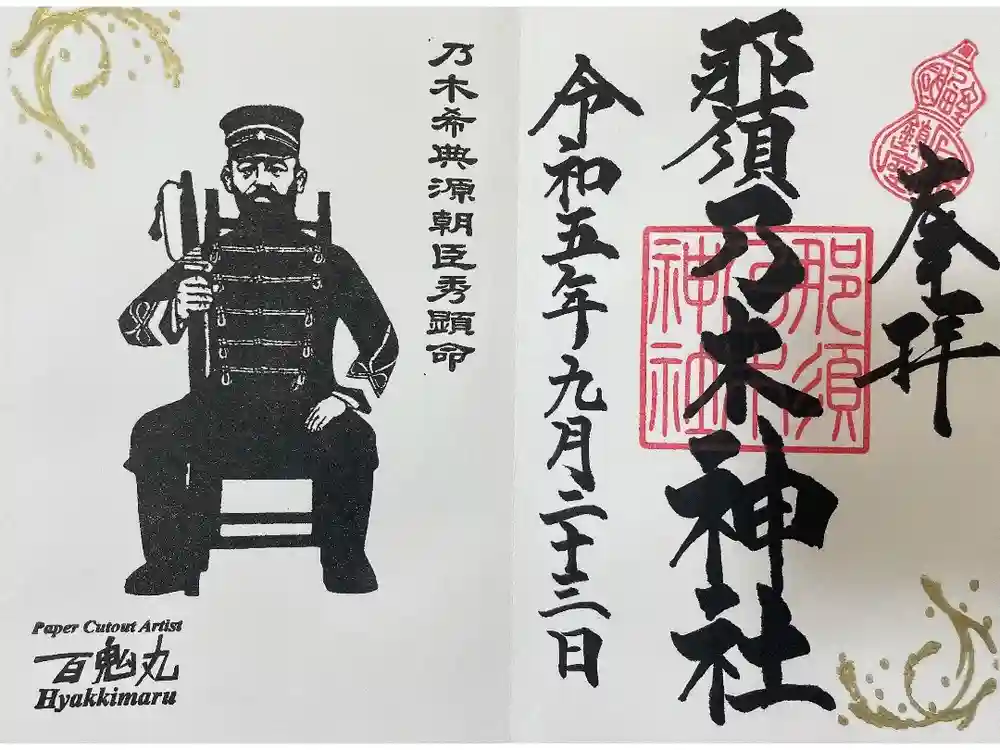 奉拝
那須乃木神社
令和五年九月二十三日
那須
乃木
神社
乃木希典源朝臣秀顕命
Paper Cutout Artist
百鬼丸
Hyakkimaru